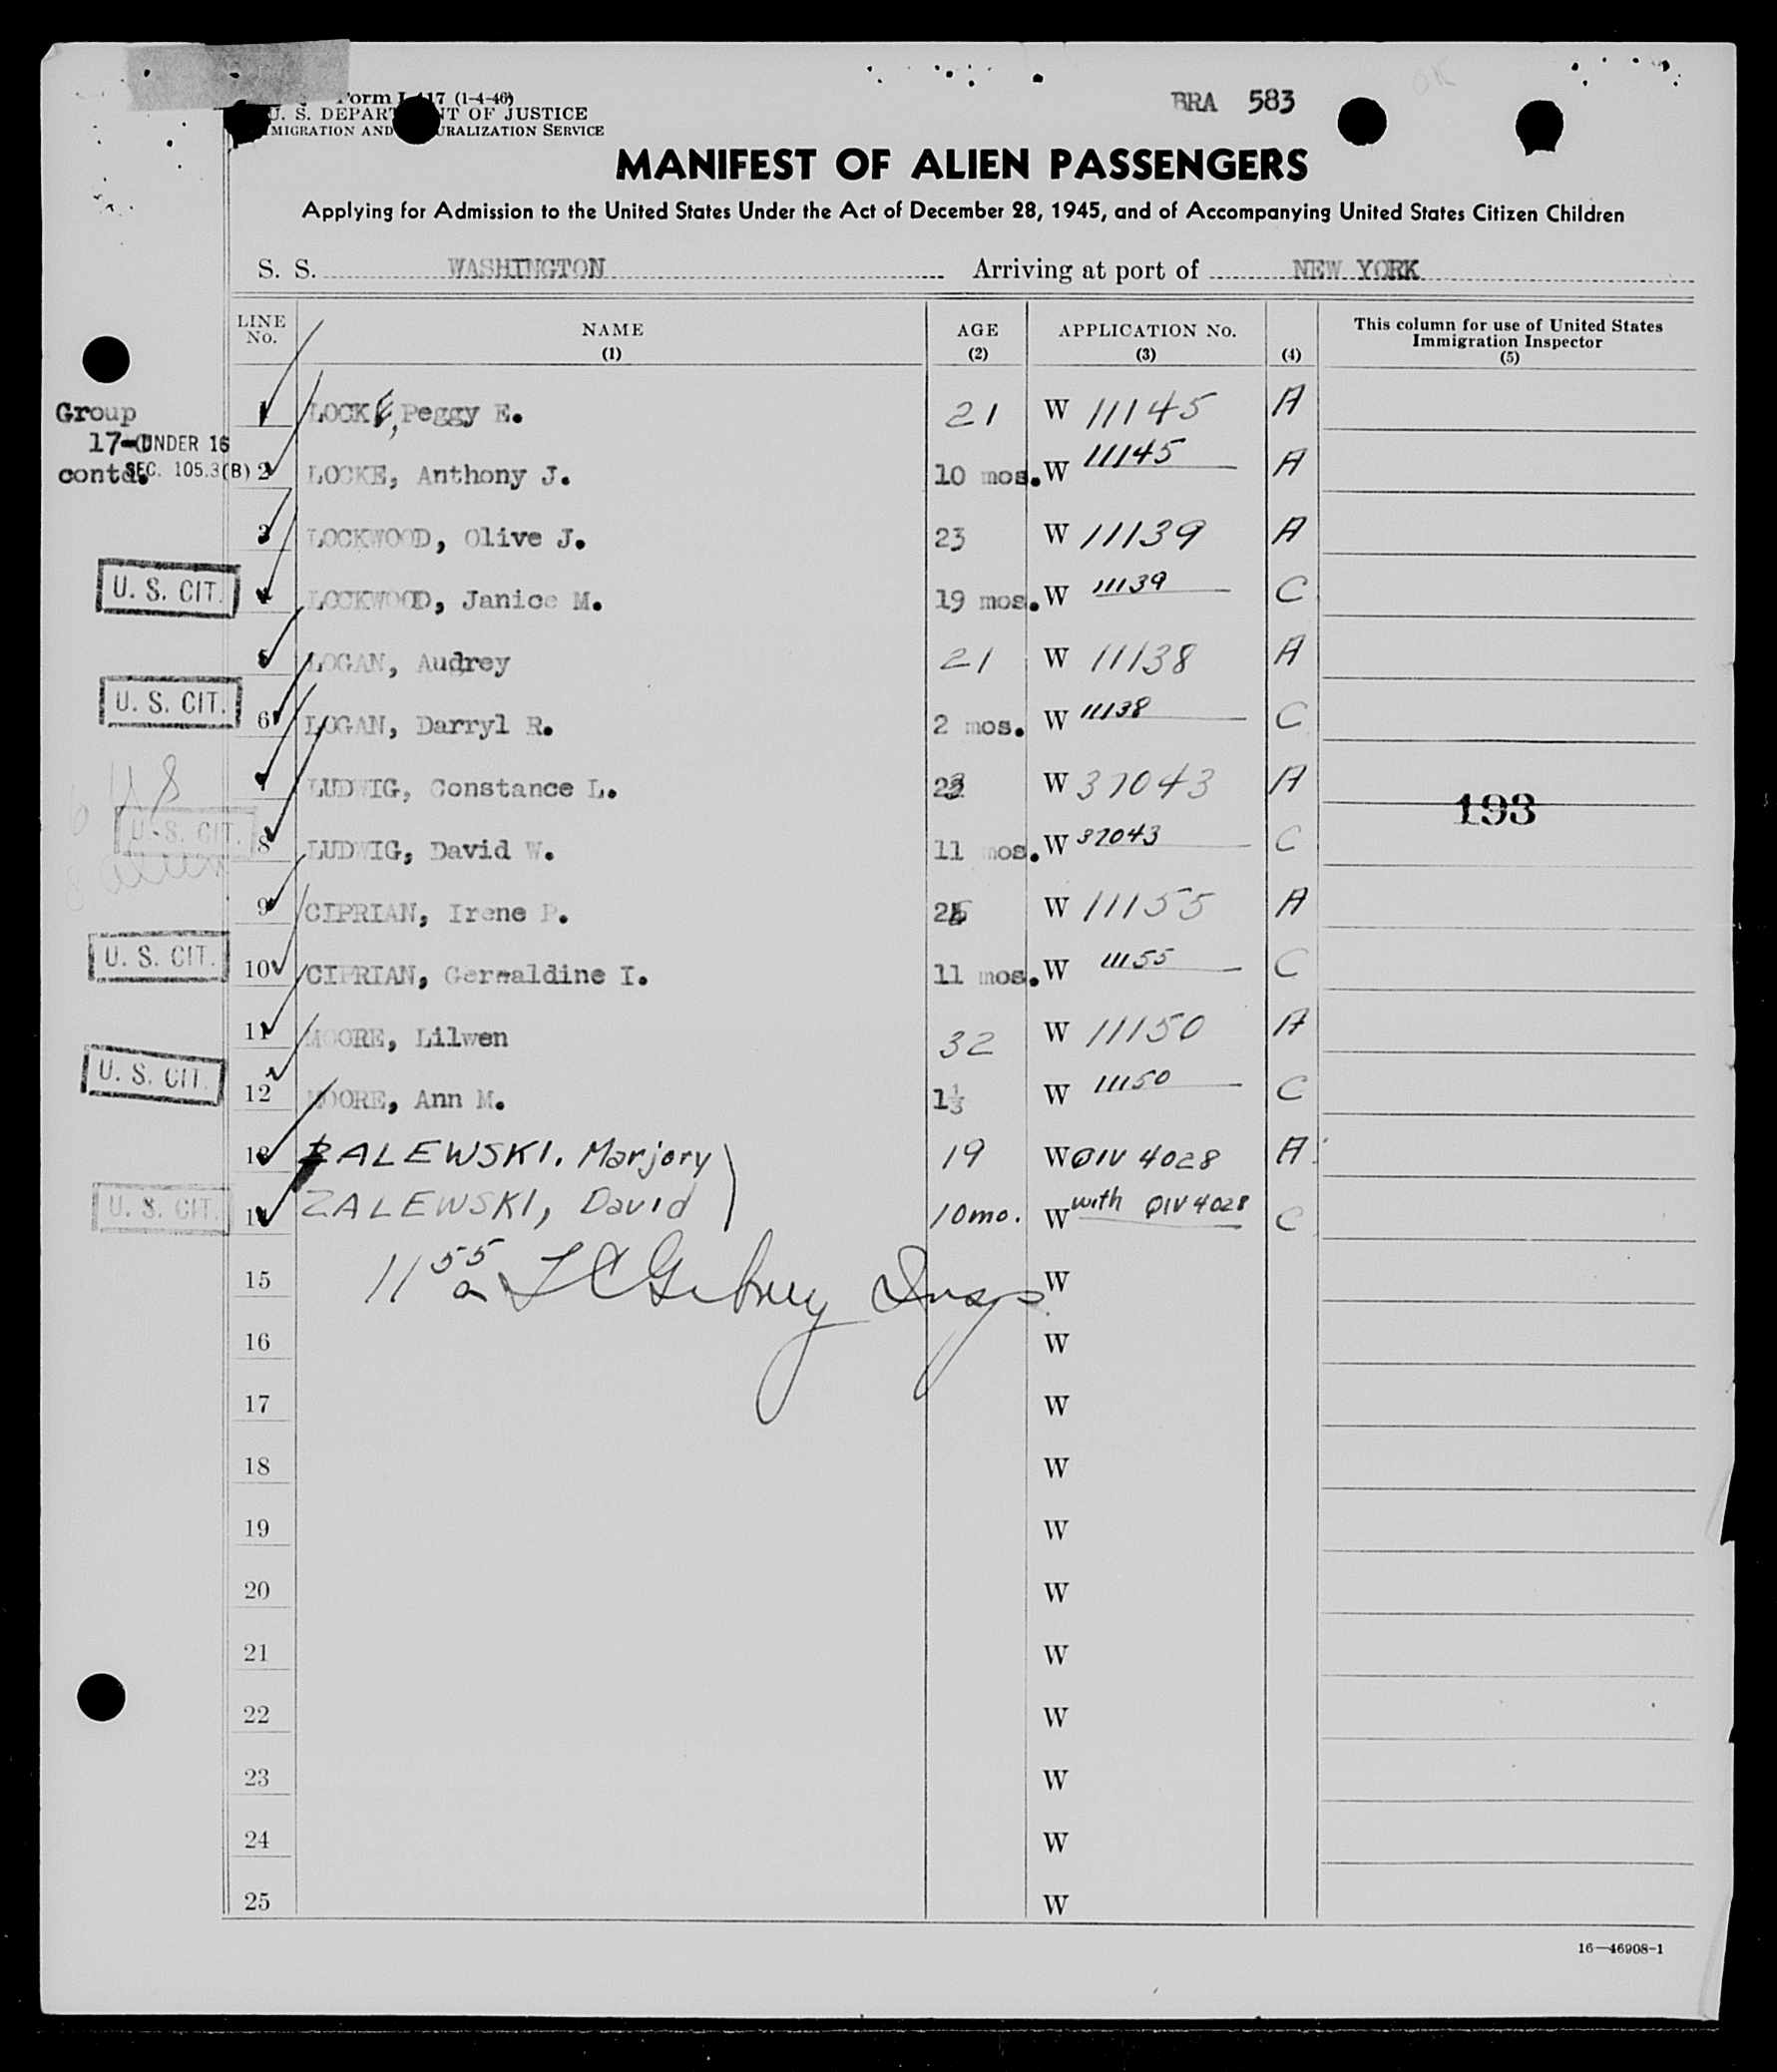 Form I-417 (1-4-46)
U. S. DEPARTMENT OF JUSTICE
IMMIGRATION AND NATURALIZATION SERVICE
BRA 583
OK
MANIFEST OF ALIEN PASSENGERS
Applying for Admission to the United States Under the Act of December 28, 1945, and of Accompanying United States Citizen Children
S. S. WASHINGTON Arriving at port of NEW YORK
LINE No. NAME (1) AGE (2) APPLICATION No. (3) (4) This column for use of United States Immigration Inspector (5)
Group 17-C contd.
UNDER 16
SEC. 105.3(B)
1 LOCKE, Peggy E. 21 W 11145 A
2 LOCKE, Anthony J. 10 mos. W 11145 A
3 LOCKWOOD, Olive J. 23 W 11139 A
U. S. CIT. 4 LOCKWOOD, Janice M. 19 mos. W 11139 C
5 LOGAN, Audrey 21 W 11138 A
U. S. CIT. 6 LOGAN, Darryl R. 2 mos. W 11138 C
7 LUDWIG, Constance L. 23 W 37043 A
193
U. S. CIT. 8 LUDWIG, David W. 11 mos. W 37043 C
9 CIPRIAN, Irene P. 26 W 11155 A
U. S. CIT. 10 CIPRIAN, Geraldine I. 11 mos. W 11155 C
11 MOORE, Lilwen 32 W 11150 A
U. S. CIT. 12 MOORE, Ann M. 1⅓ W 11150 C
13 ZALEWSKI, Marjory 19 W QIV 4028 A
U. S. CIT. 14 ZALEWSKI, David 10mo. W with QIV 4028 C
11 55 a
15 W
16 W
17 W
18 W
19 W
20 W
21 W
22 W
23 W
24 W
25 W
16—46908-1